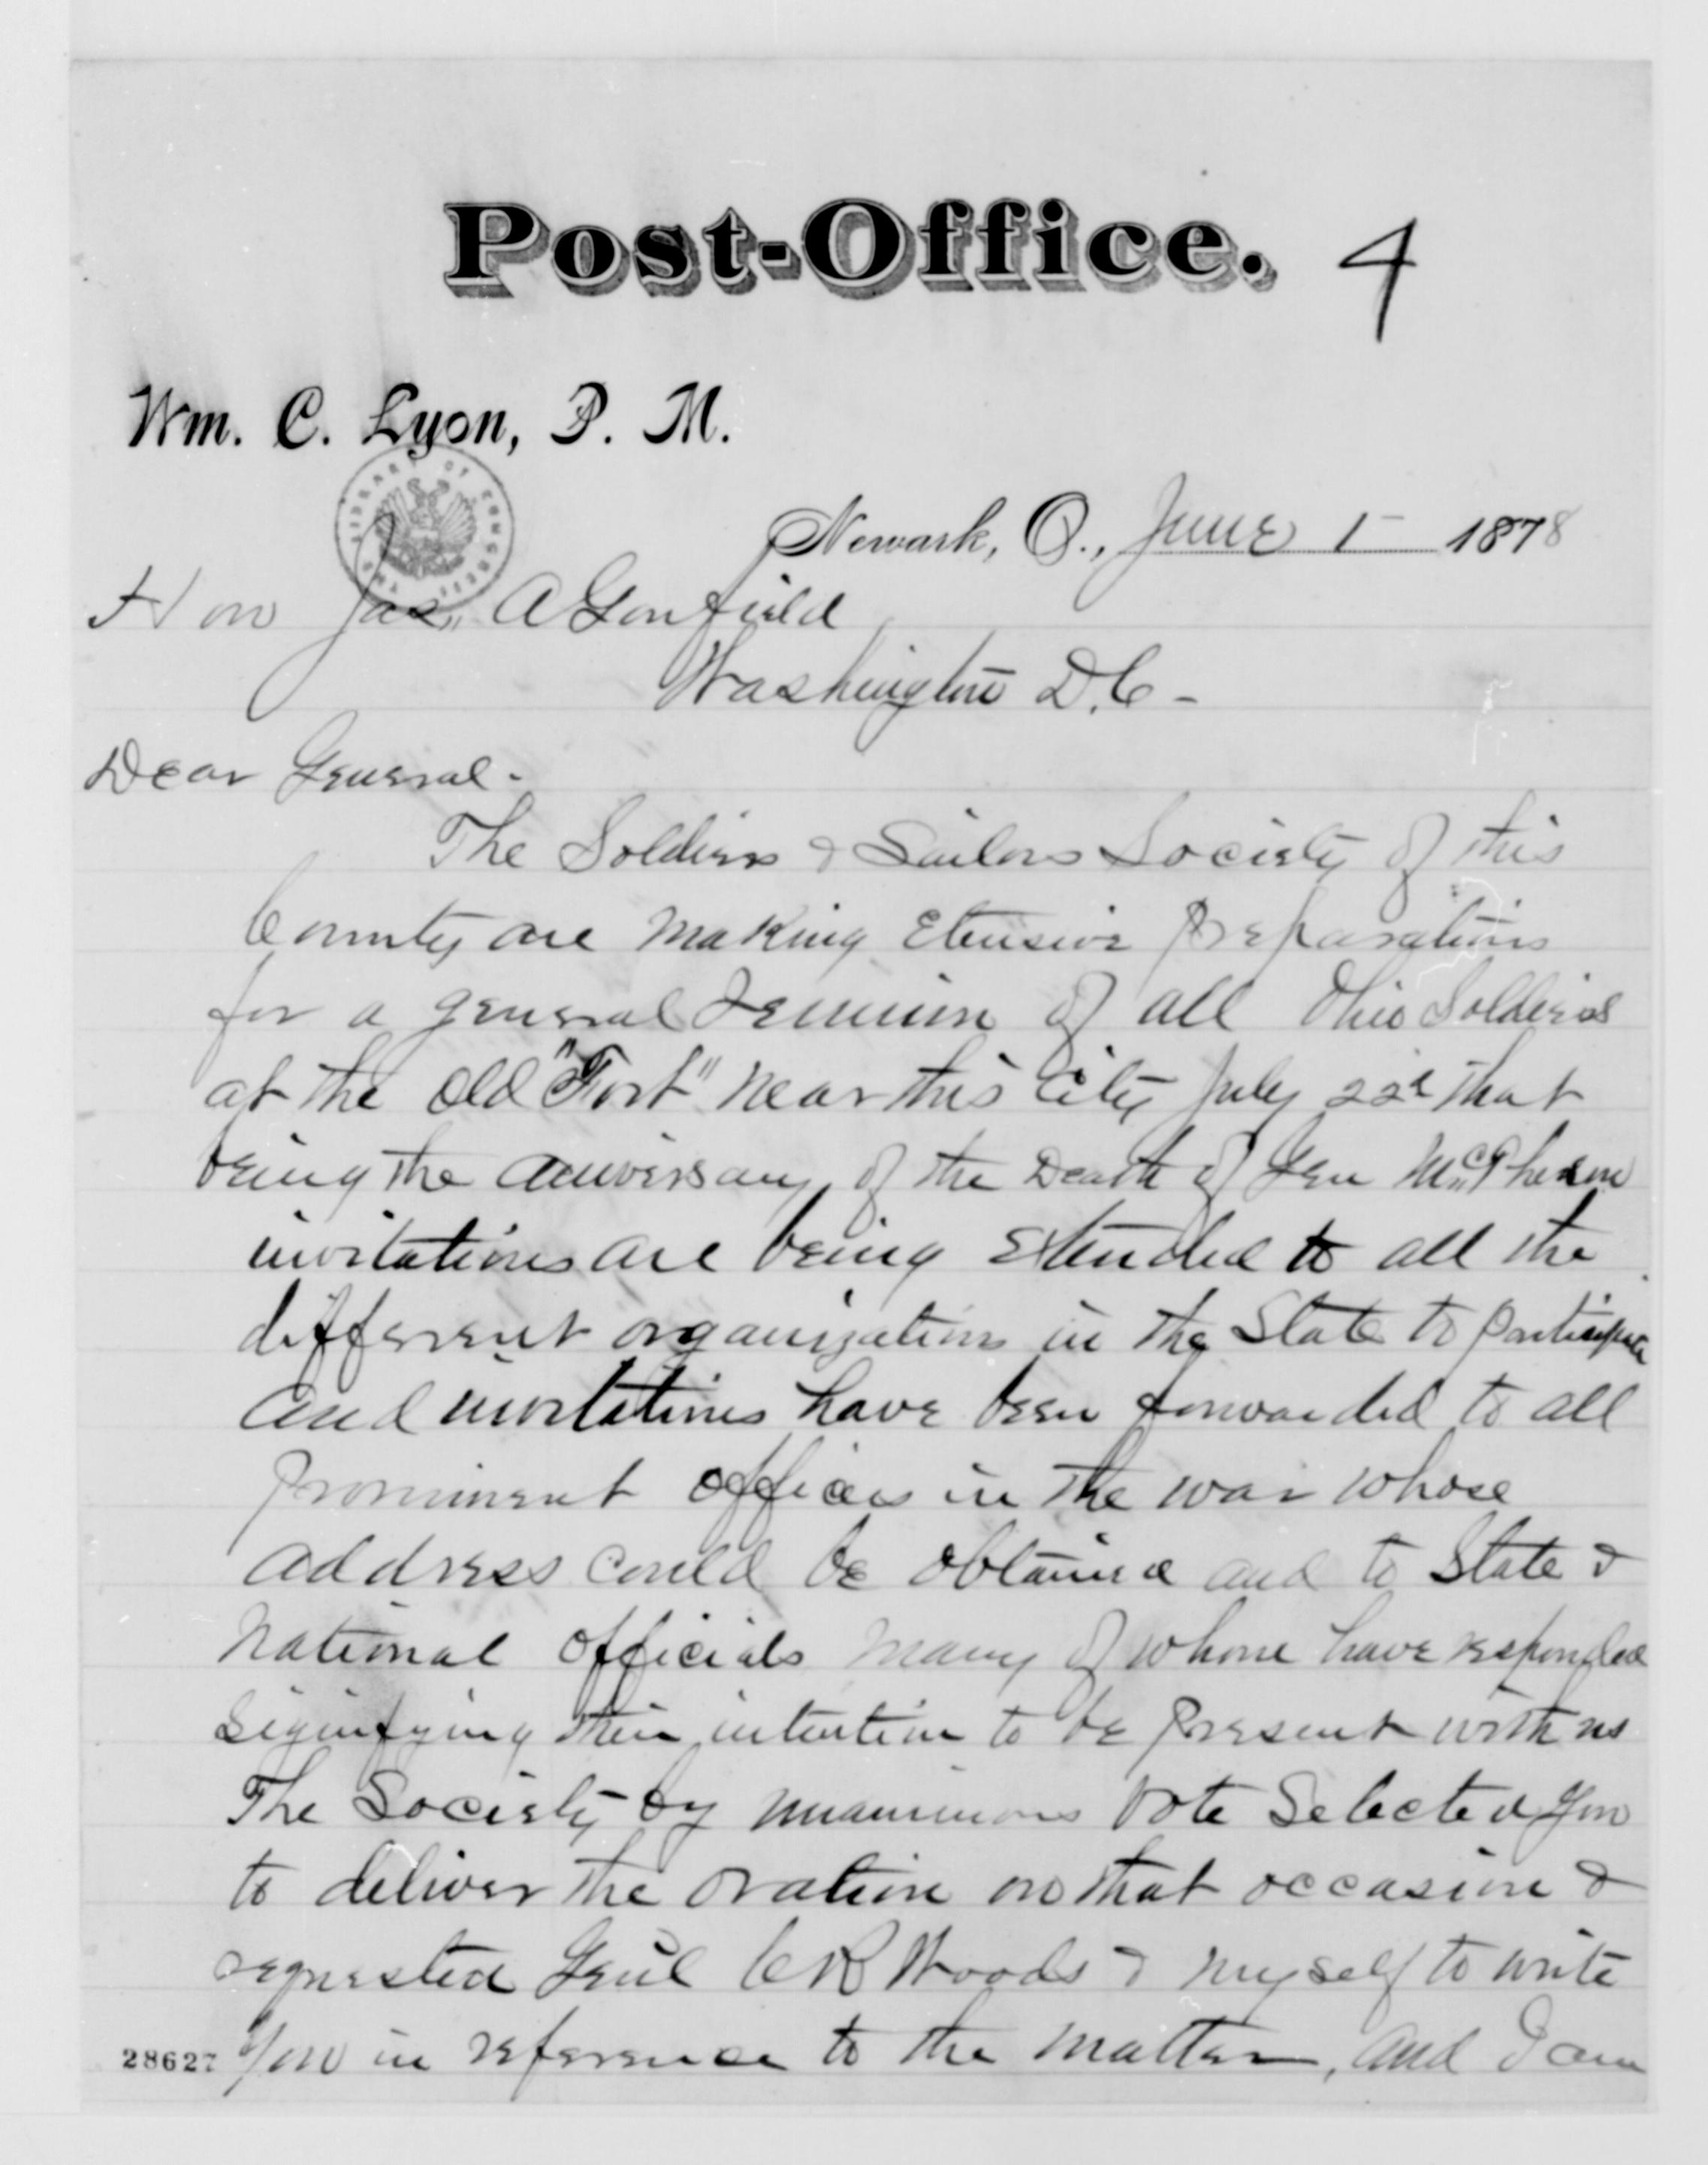 Post-Office. 4
Wm. C. Lyon, P. M.
THE LIBRARY OF CONGRESS
Newark, O., June 1 - 1878
Hon Jas. A Garfield
Washington D.C -
Dear General -
The Soldiers & Sailors Society of this
County are making Etensive preparations
for a general reunion of all Ohio Soldiers
at the old "Fort" near this City July 22d that
being the aniversary of the Death of Gen McPherson
invitations are being Extended to all the
different organizations in the State to participate
and invitations have been forwarded to all
prominent officers in the war whose
address could be obtained and to State &
National officials many of whom have responded
signifying their intention to be present with us
The Society by unanimous vote Selected you
to deliver the oration on that occasion &
requested Genl C R Woods & myself to write
28627 you in reference to the matter, and I am